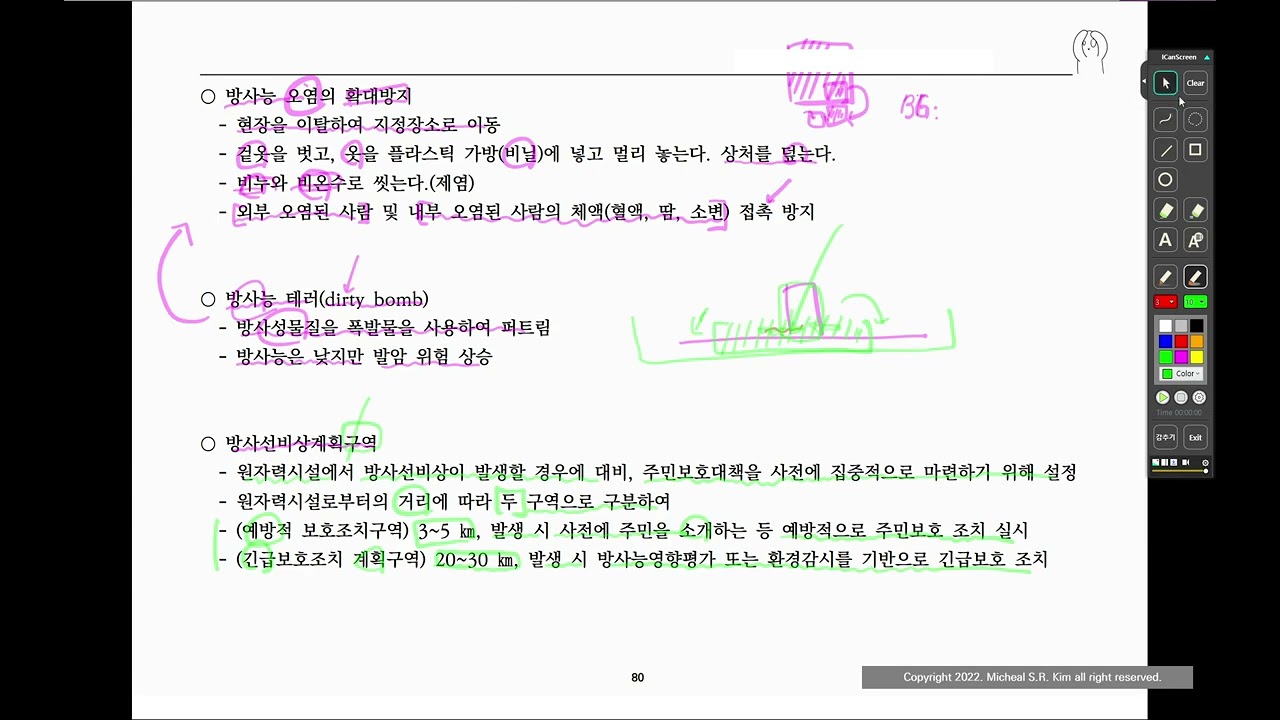 ○ 방사능 오염의 확대방지
- 현장을 이탈하여 지정장소로 이동
- 겉옷을 벗고, 옷을 플라스틱 가방(비닐)에 넣고 멀리 놓는다. 상처를 덮는다.
- 비누와 비온수로 씻는다.(제염)
- 외부 오염된 사람 및 내부 오염된 사람의 체액(혈액, 땀, 소변) 접촉 방지
BG:
○ 방사능 테러(dirty bomb)
- 방사성물질을 폭발물을 사용하여 퍼트림
- 방사능은 낮지만 발암 위험 상승
○ 방사선비상계획구역
- 원자력시설에서 방사선비상이 발생할 경우에 대비, 주민보호대책을 사전에 집중적으로 마련하기 위해 설정
- 원자력시설로부터의 거리에 따라 두 구역으로 구분하여
- (예방적 보호조치구역) 3~5 ㎞, 발생 시 사전에 주민을 소개하는 등 예방적으로 주민보호 조치 실시
- (긴급보호조치 계획구역) 20~30 ㎞, 발생 시 방사능영향평가 또는 환경감시를 기반으로 긴급보호 조치
80
Copyright 2022. Micheal S.R. Kim all right reserved.
ICanScreen
Clear
A
3
10
Color
Time 00:00:00
감추기 Exit